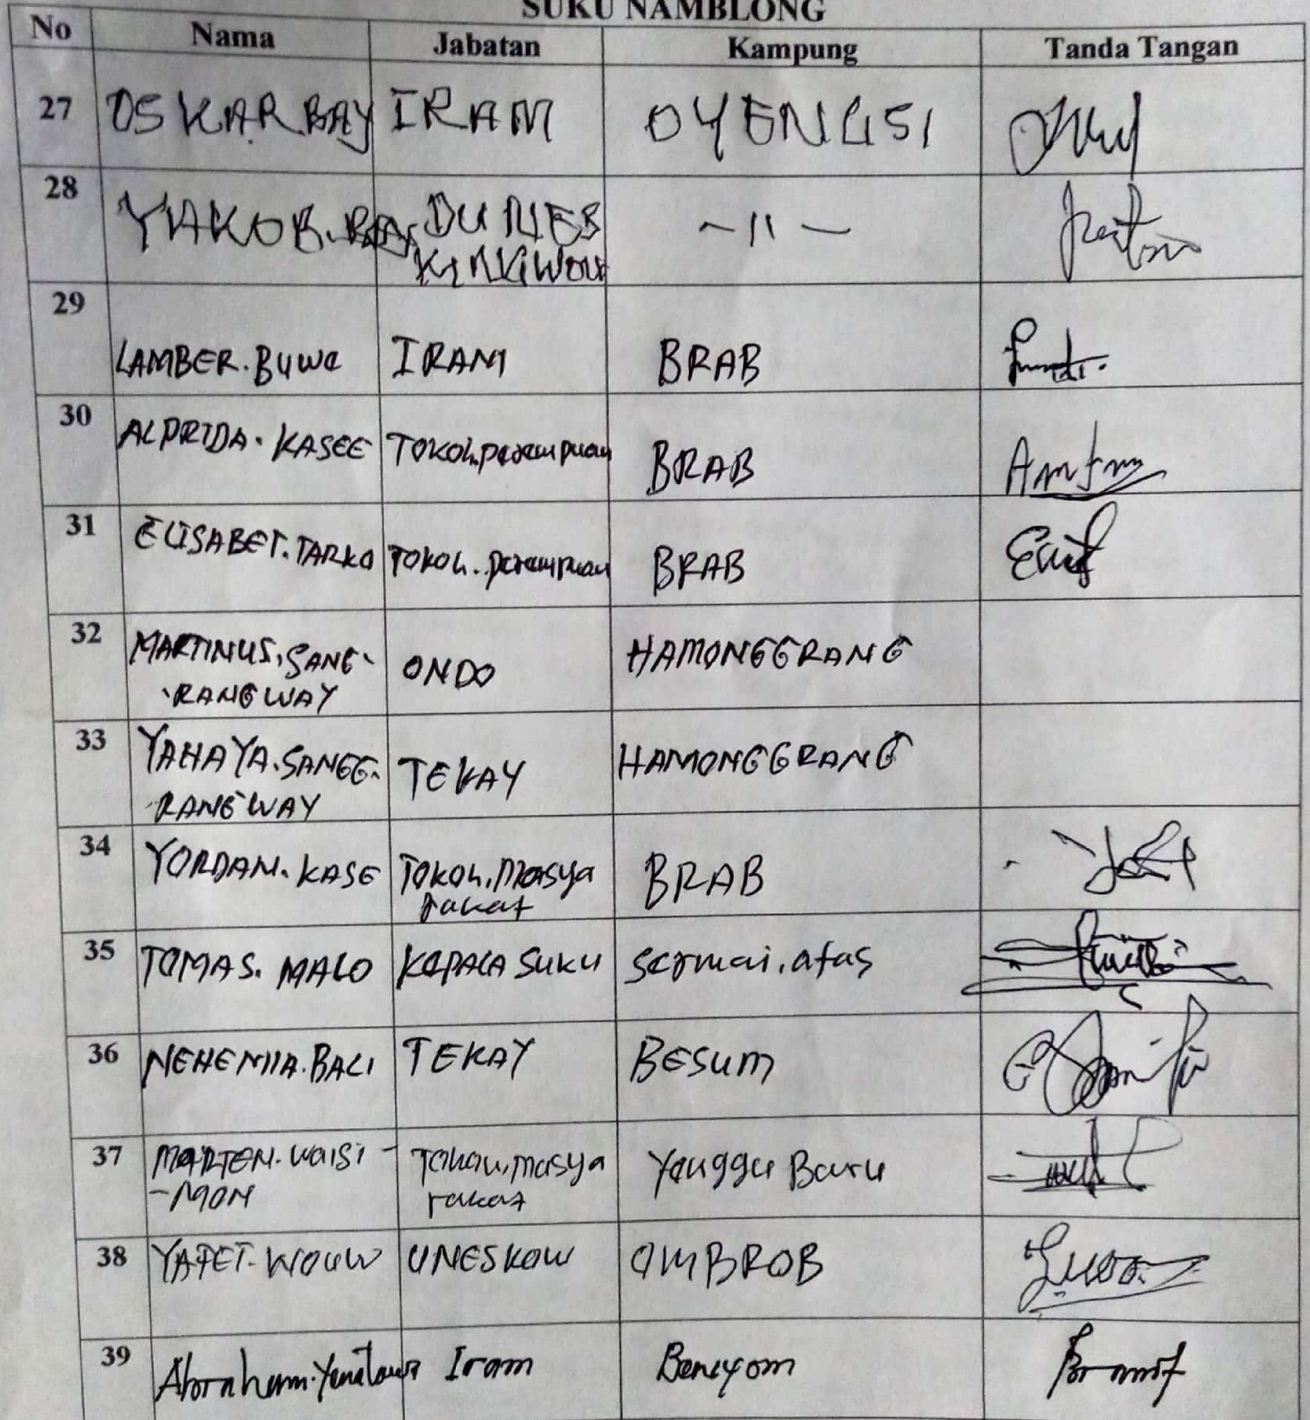 SUKU NAMBLONG
No Nama Jabatan Kampung Tanda Tangan
27 OSKAR BAY IRAM OYENGSI
28 YAKOB. BAY DUNEB - 11 -
29 LAMBER. BUWE IRAM BRAB
30 ALPRIDA. KASEE TOKOH. perempuan BRAB
31 ELISABET. TARKO TOKOH. perempuan BRAB
32 MARTINUS. SANG- ONDO HAMONGGRANG
RANGWAY
33 YAHAYA. SANGG- TEKAY HAMONGGRANG
RANGWAY
34 YORDAN. KASE TOKOH. Masya BRAB
rakat
35 TOMAS. MALO KEPALA SUKU Sermai. atas
36 NEHEMIA. BALI TEKAY BESUM
37 MARTEN. Waisi - Tokoh. masya Yanggu Baru
-MON rakat
38 YAPET. WOUW UNESKOW OMBROB
39 Abraham. Iram Beneyom